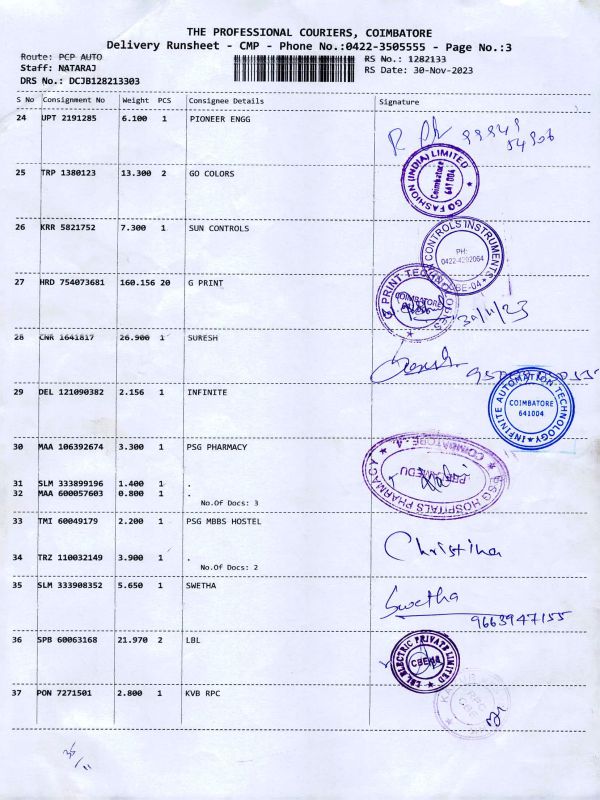 THE PROFESSIONAL COURIERS, COIMBATORE
Delivery Runsheet - CMP - Phone No.:0422-3505555 - Page No.:3
Route: PCP AUTO
Staff: NATARAJ
DRS No.: DCJB128213303
RS No.: 1282133
RS Date: 30-Nov-2023
S No Consignment No Weight PCS Consignee Details Signature
24 UPT 2191285 6.100 1 PIONEER ENGG
99949
54906
25 TRP 1380123 13.300 2 GO COLORS
GO FASHION (INDIA) LIMITED
Coimbatore
641 004
26 KRR 5821752 7.300 1 SUN CONTROLS
CONTROLS INSTRUMENTS
PH:
0422-4202064
CBE-04
27 HRD 754073681 160.156 20 G PRINT
G PRINT
COIMBATORE
30/11/23
28 CNR 1641817 26.900 1 SURESH
Suresh
29 DEL 121090382 2.156 1 INFINITE
INFINITE AUTOMATION TECHNOLOGY
COIMBATORE
641004
30 MAA 106392674 3.300 1 PSG PHARMACY
PSG HOSPITALS PHARMACY
COIMBATORE-4
31 SLM 333899196 1.400 1 .
32 MAA 600057603 0.800 1 .
No.Of Docs: 3
33 TMI 60049179 2.200 1 PSG MBBS HOSTEL
Christina
34 TRZ 110032149 3.900 1 .
No.Of Docs: 2
35 SLM 333908352 5.650 1 SWETHA
Swetha
9663947155
36 SPB 60063168 21.970 2 LBL
LBL ELECTRIC PRIVATE LIMITED
CBE-44
37 PON 7271501 2.800 1 KVB RPC